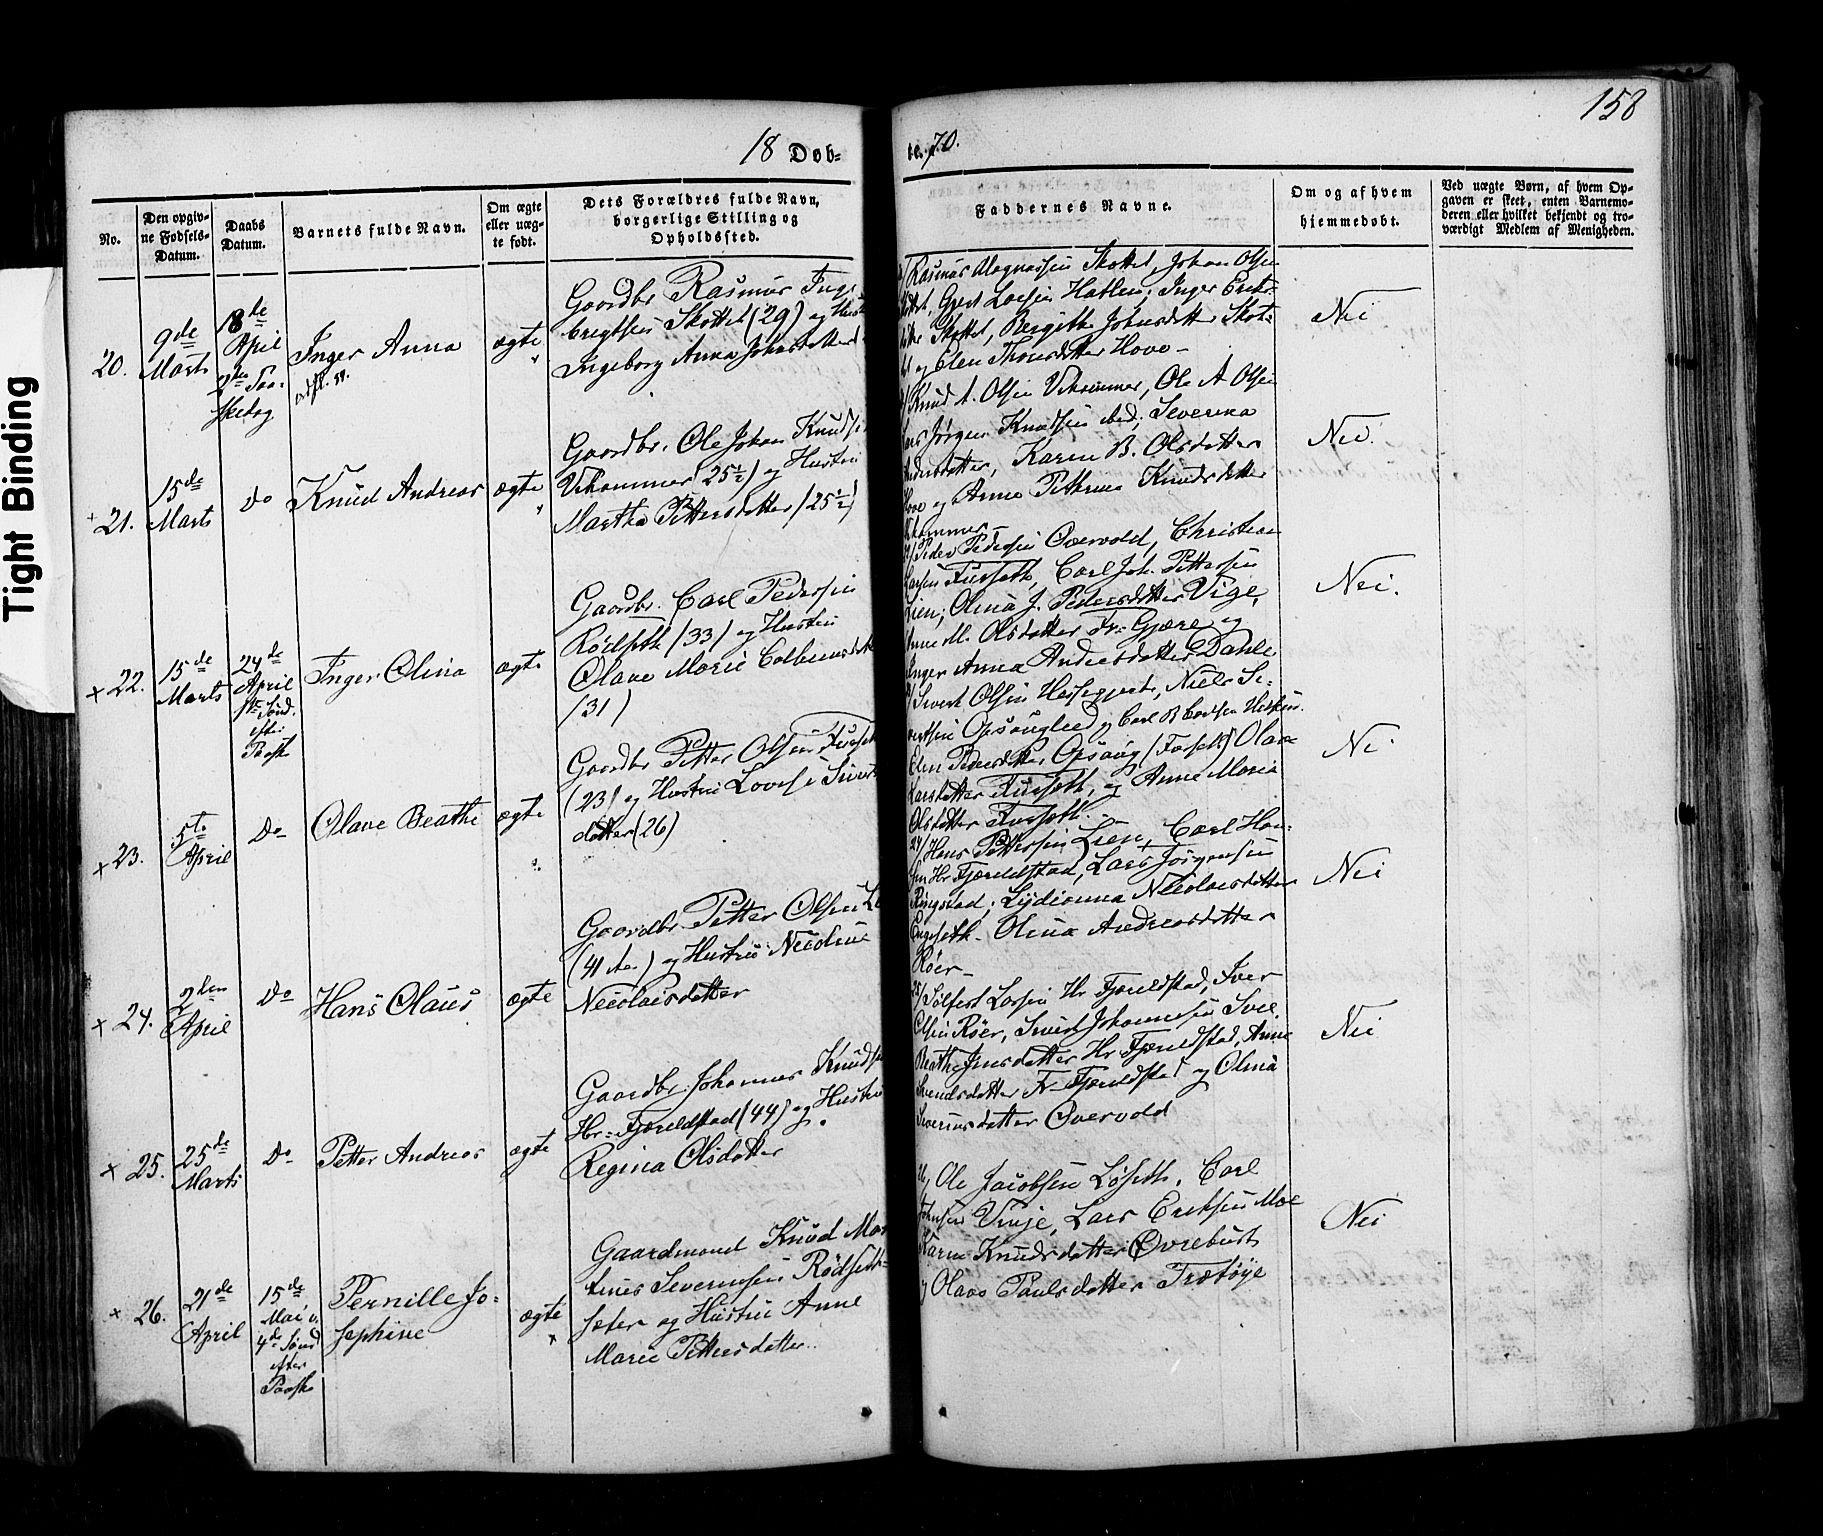 158
18 Døb-
te. 70.
Tight Binding
No.
Den opgiv-
ne Fødsels-
Datum.
Daabs
Datum.
Barnets fulde Navn.
Om ægte
eller uæg-
te født.
Dets Forældres fulde Navn,
borgerlige Stilling og
Opholdssted.
Faddernes Navne.
Om og af hvem
hjemmedøbt.
Ved uægte Børn, af hvem Op-
gaven er skeet, enten Barnemo-
deren eller hvilket bekjendt og tro-
værdigt Medlem af Menigheden.
20.
9de
Marts
18de
April
2den Paa-
skedag
Inger Anna
ægte
Gaardbr. Rasmus Inge-
brigtsen Skottet (29) og
Ingeborg Anna Johnsdatter
Rasmus Magnussen Skottet, Johan Olsen
Gjert Larsen Hatlen; Inger
Skottet, Bergithe Johnsdatter Skot-
og Elen Thomsdatter Hove-
Nei
21.
15de
Marts
Do
Knud Andreas
ægte
Gaardbr. Ole Johan
Vikammer (25½) og Hustru
Martha Pettersdatter (25½)
Knud A. Olsen Vikammer, Ole A Olsen
Jørgen Knudsen ibid; Severina
Karen B. Olsdatter
og Anne Pethrine Knudsdatter
Nei.
× 22.
15de
Marts
24de
April
1ste Sønd.
efter
Paaske
Inger Olina
ægte
Gaardbr. Carl Pedersen
Rødseth (33) og Hustru
Olave Marie
(31)
Peder Pedersen Overvold, Christian
Larsen Furseth, Carl Joh. Pettersen
Lien; Olina J. Pedersdatter Vige,
Anne M. Olsdatter Fr: Gjære og
Inger Anna Andreasdatter Dahle
Nei.
× 23.
5te
April
Do
Olave Beathe
ægte
Gaardbr Petter Olsen
(23) og Hustru Lovise
datter (26)
Sivert Olsen Niels Si-
Elen Pedersdatter Opsaug (Furseth) Olave
Larsdatter Furseth, og Anne Maria
Olsdatter Furseth.
Nei
× 24.
2den
April
Do
Hans Olaus
ægte
Gaardbr. Petter Olsen
(41 Aar) og Hustru Nicoline
Nicolaisdatter
24/ Hans Pettersen Lien, Carl Han-
sen Hr Fjæreldstad, Lars Jørgensen
Ringstad; Lydianna Nicolaisdatter
Engeseth- Olina Andreasdatter
Røer-
Nei
× 25.
25de
Marts
Do
Petter Andreas
ægte
Gaardbr. Johannes
Hr: Fjæreldstad (44) og Hustru
Regina Olsdatter
Larsen Hr Fjæreldstad, Iver
Olsen Røer, Sivert Johannesen
Beathe Jensdatter Hr Fjæreldstad, Anne
Fr- Fjæreldstad og Olina
Overvold
Nei
× 26.
21de
April
15de
Mai
4de Sønd
efter
Paaske
Pernille Jo-
sephine
ægte
Gaardmand Knud Mar-
tinus Severinsen Rødseth-
sæter og Hustru Anne
Marie Pettersdatter
Ole Jacobsen Løseth, Carl
Vinje, Lars Eriksen Moe
Karen Knudsdatter Øvrebust
Paulsdatter Trætøye
Nei